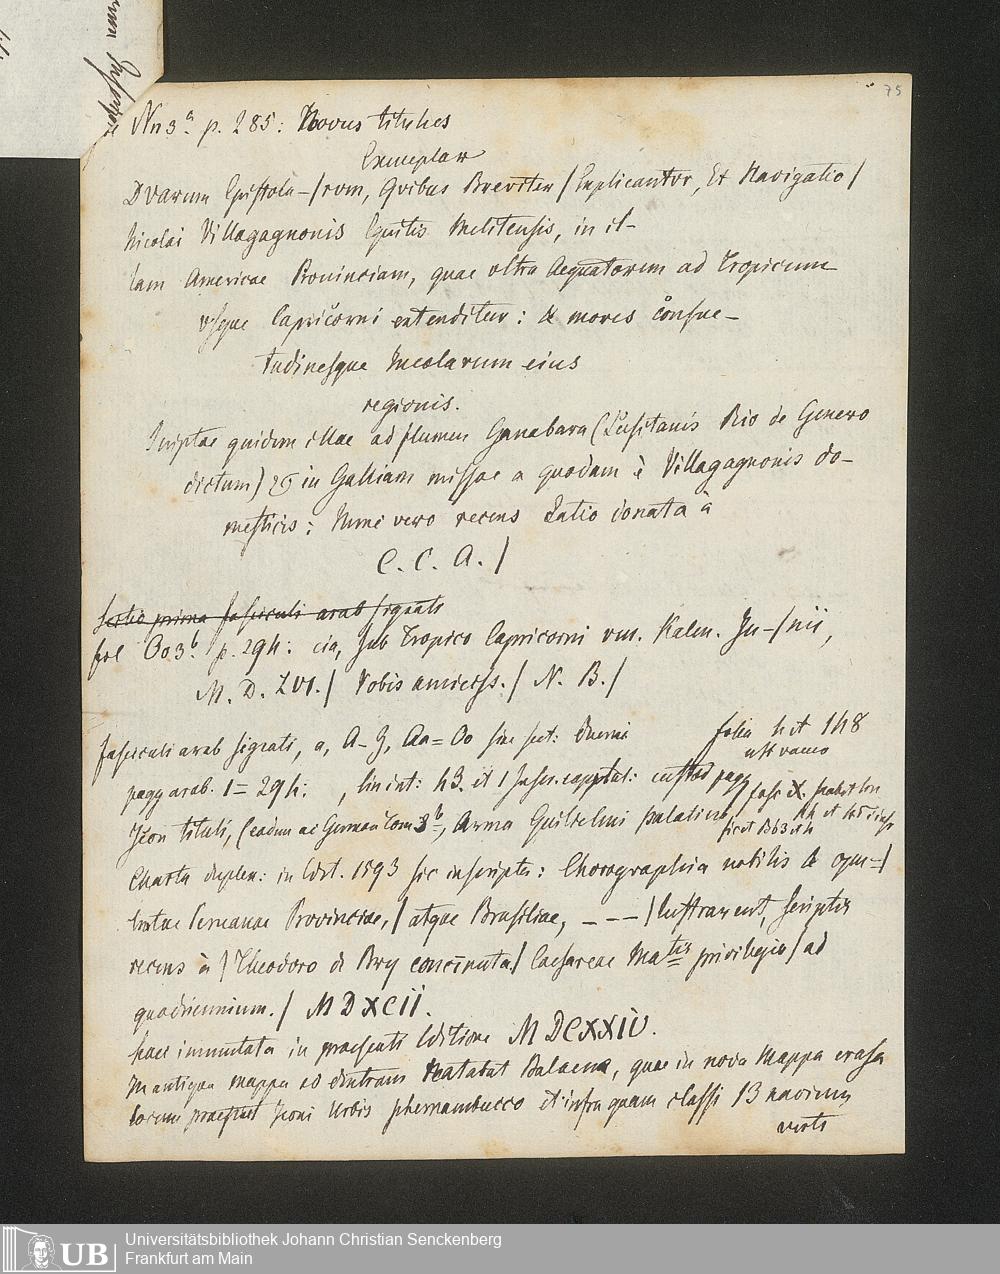 75
Nn 3a. p. 285: Novus titulus
Exemplar
Dvarum Epistola-/rvm, Qvibus Breviter / Explicantvr, Et Navigatio /
Nicolai Villagagnonis Equitis Melitensis, in il-
lam Americae Prouinciam, quae vltra Aequatorem ad Tropicum
vsque Capricorni extenditur: & mores consue-
tudinesque Incolarum eius
regionis.
Scriptae quidem illae ad flumen Ganabara (Lusitanis Rio de Genero
dictum) & in Galliam missae a quodam è Villagagnonis do-
mesticis: Nunc vero recens Latio donata à
C. C. A. /
Sectio prima fasciculi arab signati
fol Oo3b. p. 294: cia, sub Tropico Capricorni Kalen. Ju-/nii,
M. D. LVI. / Vobis / N. B. /
fasciculi arab signati, a, A-G, Aa=Oo
folia h et 148
vacuo
pagg arab. 1=294: , lin int: 43. et 1
Icon tituli, (eadem ac German Tom 3b, Arma Guilielmi palatini,
Charta duplex: in Edit. 1593 sic inscripta: Chorographia nobilis & opu-/
lentae Peruanae Provinciae, / atque Brasiliae, - - - / lustrarent, scriptis
recens à / Theodoro de Bry concinnata / Caesareae Matis privilegio / ad
quadriennium. / MDXCII.
haec immutata in praesenti Editione MDCXXIV.
In antiqua mappa ad dextram natabat Balaena, quae in nova Mappa erasa
locum praebuit Iconi Urbis phernambucco et infra quam classi 13 navium
verte
Universitätsbibliothek Johann Christian Senckenberg
UB
Frankfurt am Main